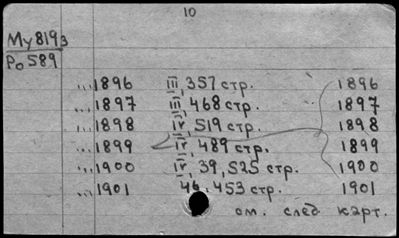 10
Му8193
Ро589
...1896 III, 357 стр. 1896
...1897 III, 468 стр. 1897
...1898 IV, 519 стр. 1898
...1899 IV, 489 стр. 1899
...1900 IV, 39, 525 стр. 1900
...1901 46, 453 стр. 1901
см. след карт.